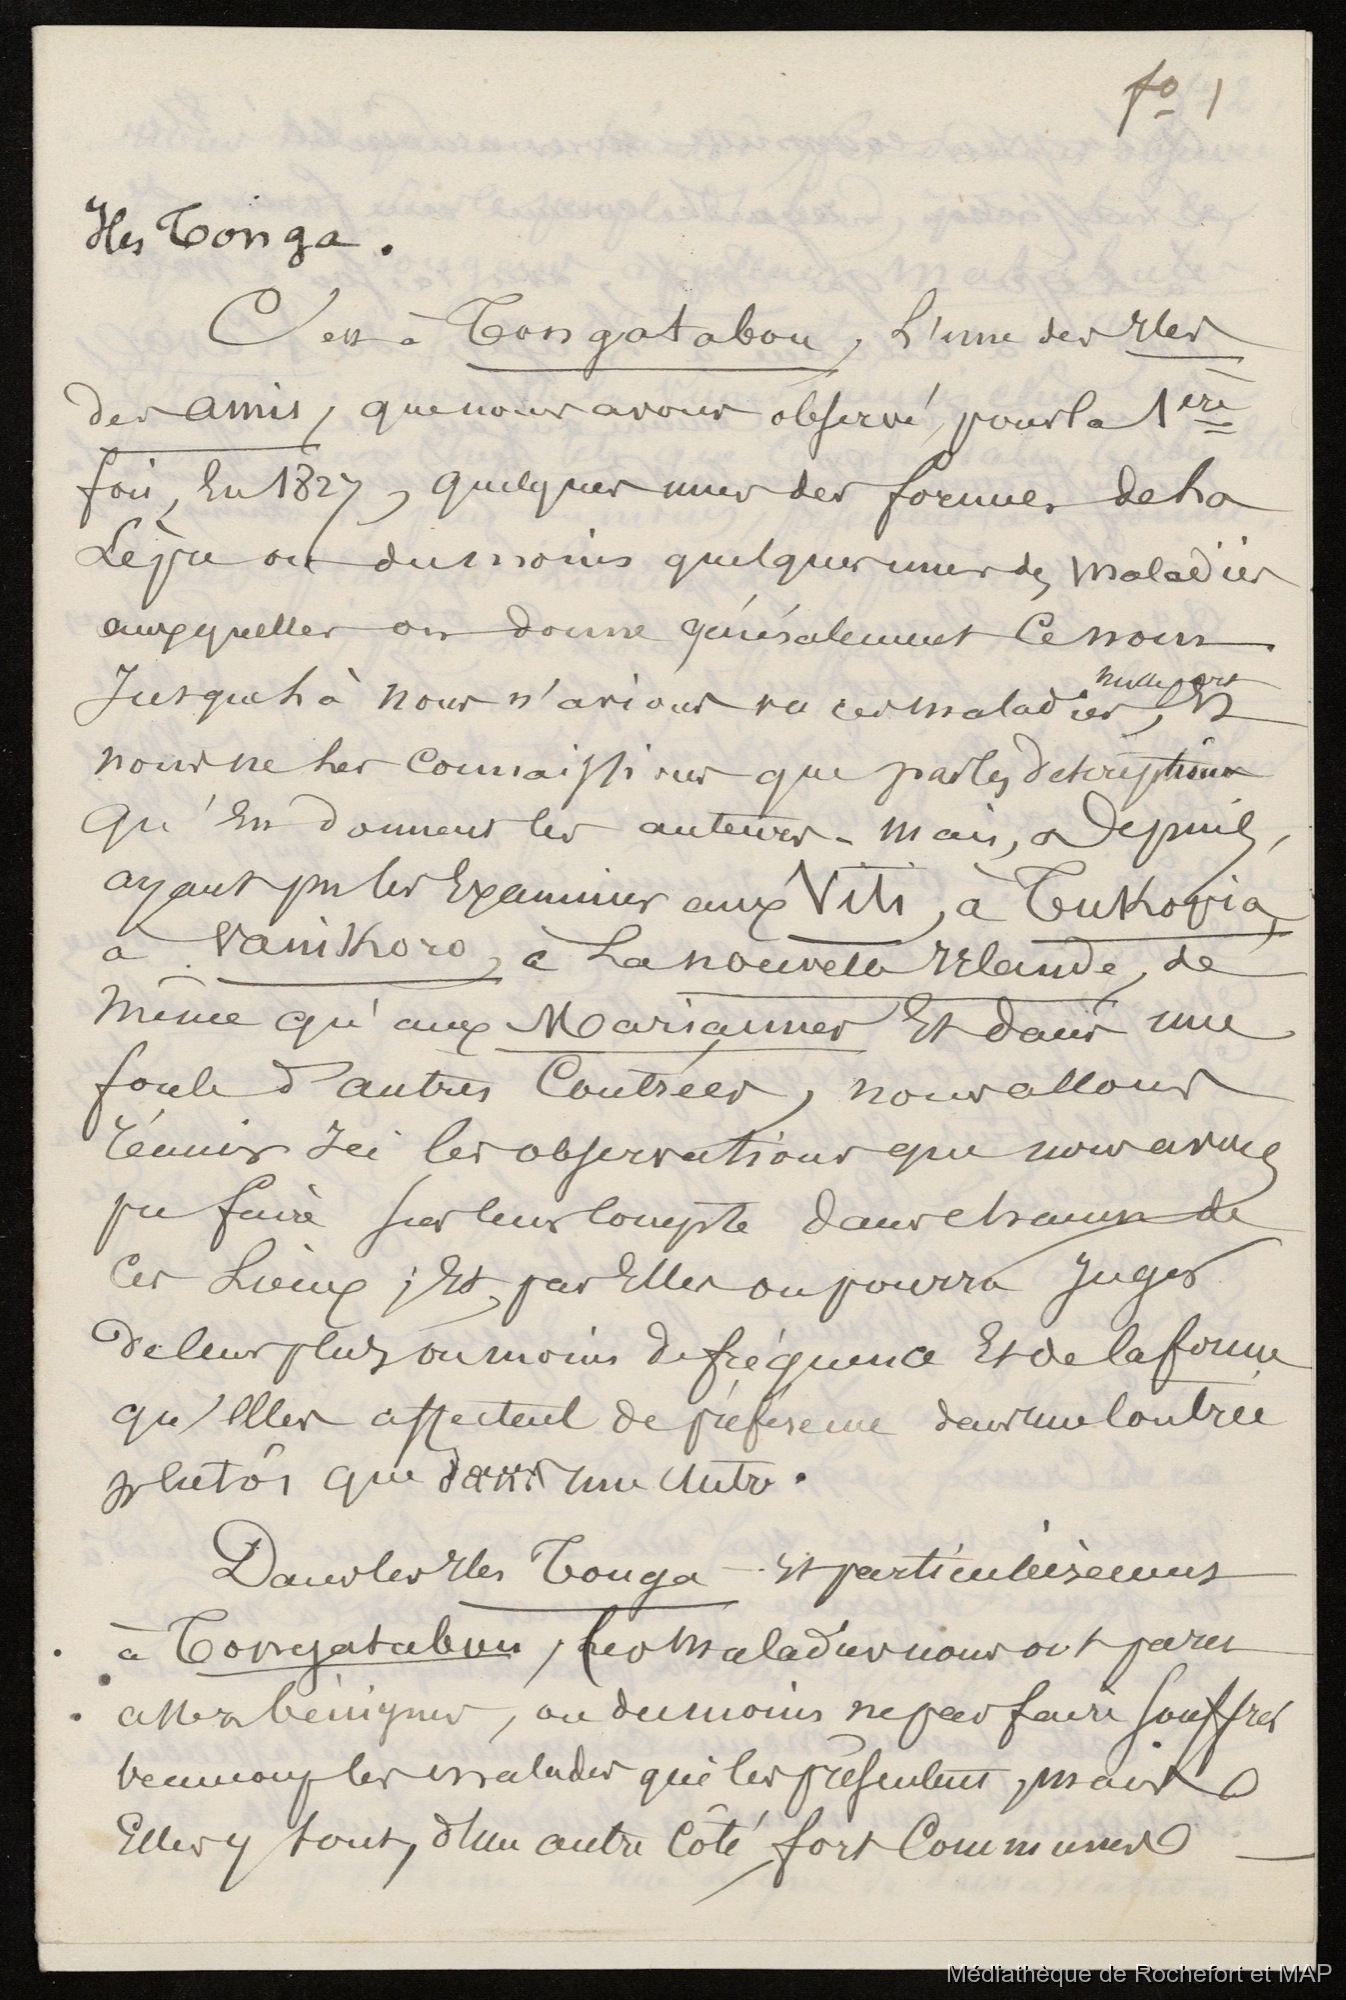 fo 1
Iles Tonga.
C'est à Tongatabou, l'une des Iles
des amis, que nous avons observé, pour la 1ère
fois, En 1827, quelques unes des formes de la
Lèpre ou du moins quelques unes des maladies
auxquelles on donne généralement ce nom
Jusque là nous n'avions vu ces maladies nulle part, Et
nous ne les connaissions que par les descriptions
qu'en donnent les auteurs. mais, Depuis,
ayant pu les Examiner aux Viti, à Tukopia,
à Vanikoro, à La nouvelle Irlande, de
même qu'aux Mariannes Et dans une
foule d'autres Contrées, nous allons
réunir Ici les observations que nous avons
pu faire sur leur compte dans chacun de
ces Lieux ; Et, par Elles on pourra Juger
de leur plus ou moins de fréquence Et de la forme
qu'Elles affectent de préférence dans une contrée
plutôt que dans une autre.
Dans les Iles Tonga Et particulièrement
à Tongatabou, les maladies nous ont paru
assez bénignes, ou du moins ne pas faire souffrir
beaucoup les malades qui les présentent, mais
Elles y sont, d'un autre côté, fort Communes
Médiathèque de Rochefort et MAP